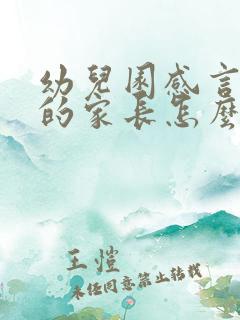 幼兒園感言
的家長怎麼
王愷
未任同意禁止轉載